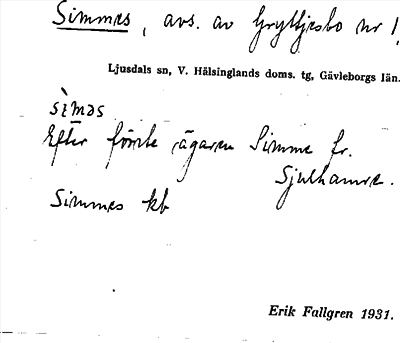 Simmes, avs. av Gryttjesbo nr 1,
Ljusdals sn, V. Hälsinglands doms. tg, Gävleborgs län.
sìməs
Efter förste ägaren Simme fr.
Sjulhamre.
Simmes kb
Erik Fallgren 1931.